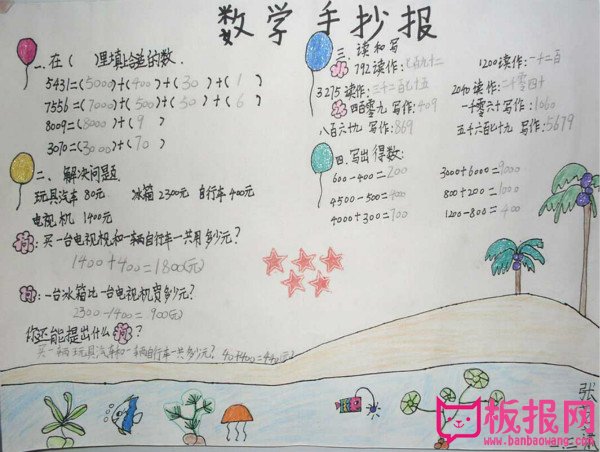 数学手抄报
一、在( )里填上合适的数.
5431=(5000)+(400)+(30)+(1)
7556=(7000)+(500)+(50)+(6)
8009=(8000)+(9)
3070=(3000)+(70)
二、解决问题
玩具汽车 80元 冰箱 2300元 自行车 400元
电视机 1400元
问:买一台电视机和一辆自行车一共用多少元?
1400+400=1800(元)
问:一台冰箱比一台电视机贵多少元?
2300-1400=900(元)
你还能提出什么问?
买一辆玩具汽车和一辆自行车一共多少元? 40+400=440(元)
三、读和写
792读作:七百九十二 1200读作:一千二百
3275读作:三千二百七十五 2040读作:二千零四十
四百零九 写作:409 一千零六十 写作:1060
八百六十九 写作:869 五千六百七十九 写作:5679
四、写出得数:
600-400=200 3000+6000=9000
4500-500=4000 800+200=1000
4000+300=700 1200-800=400
张
二.二
板报网
www.banbaowang.com